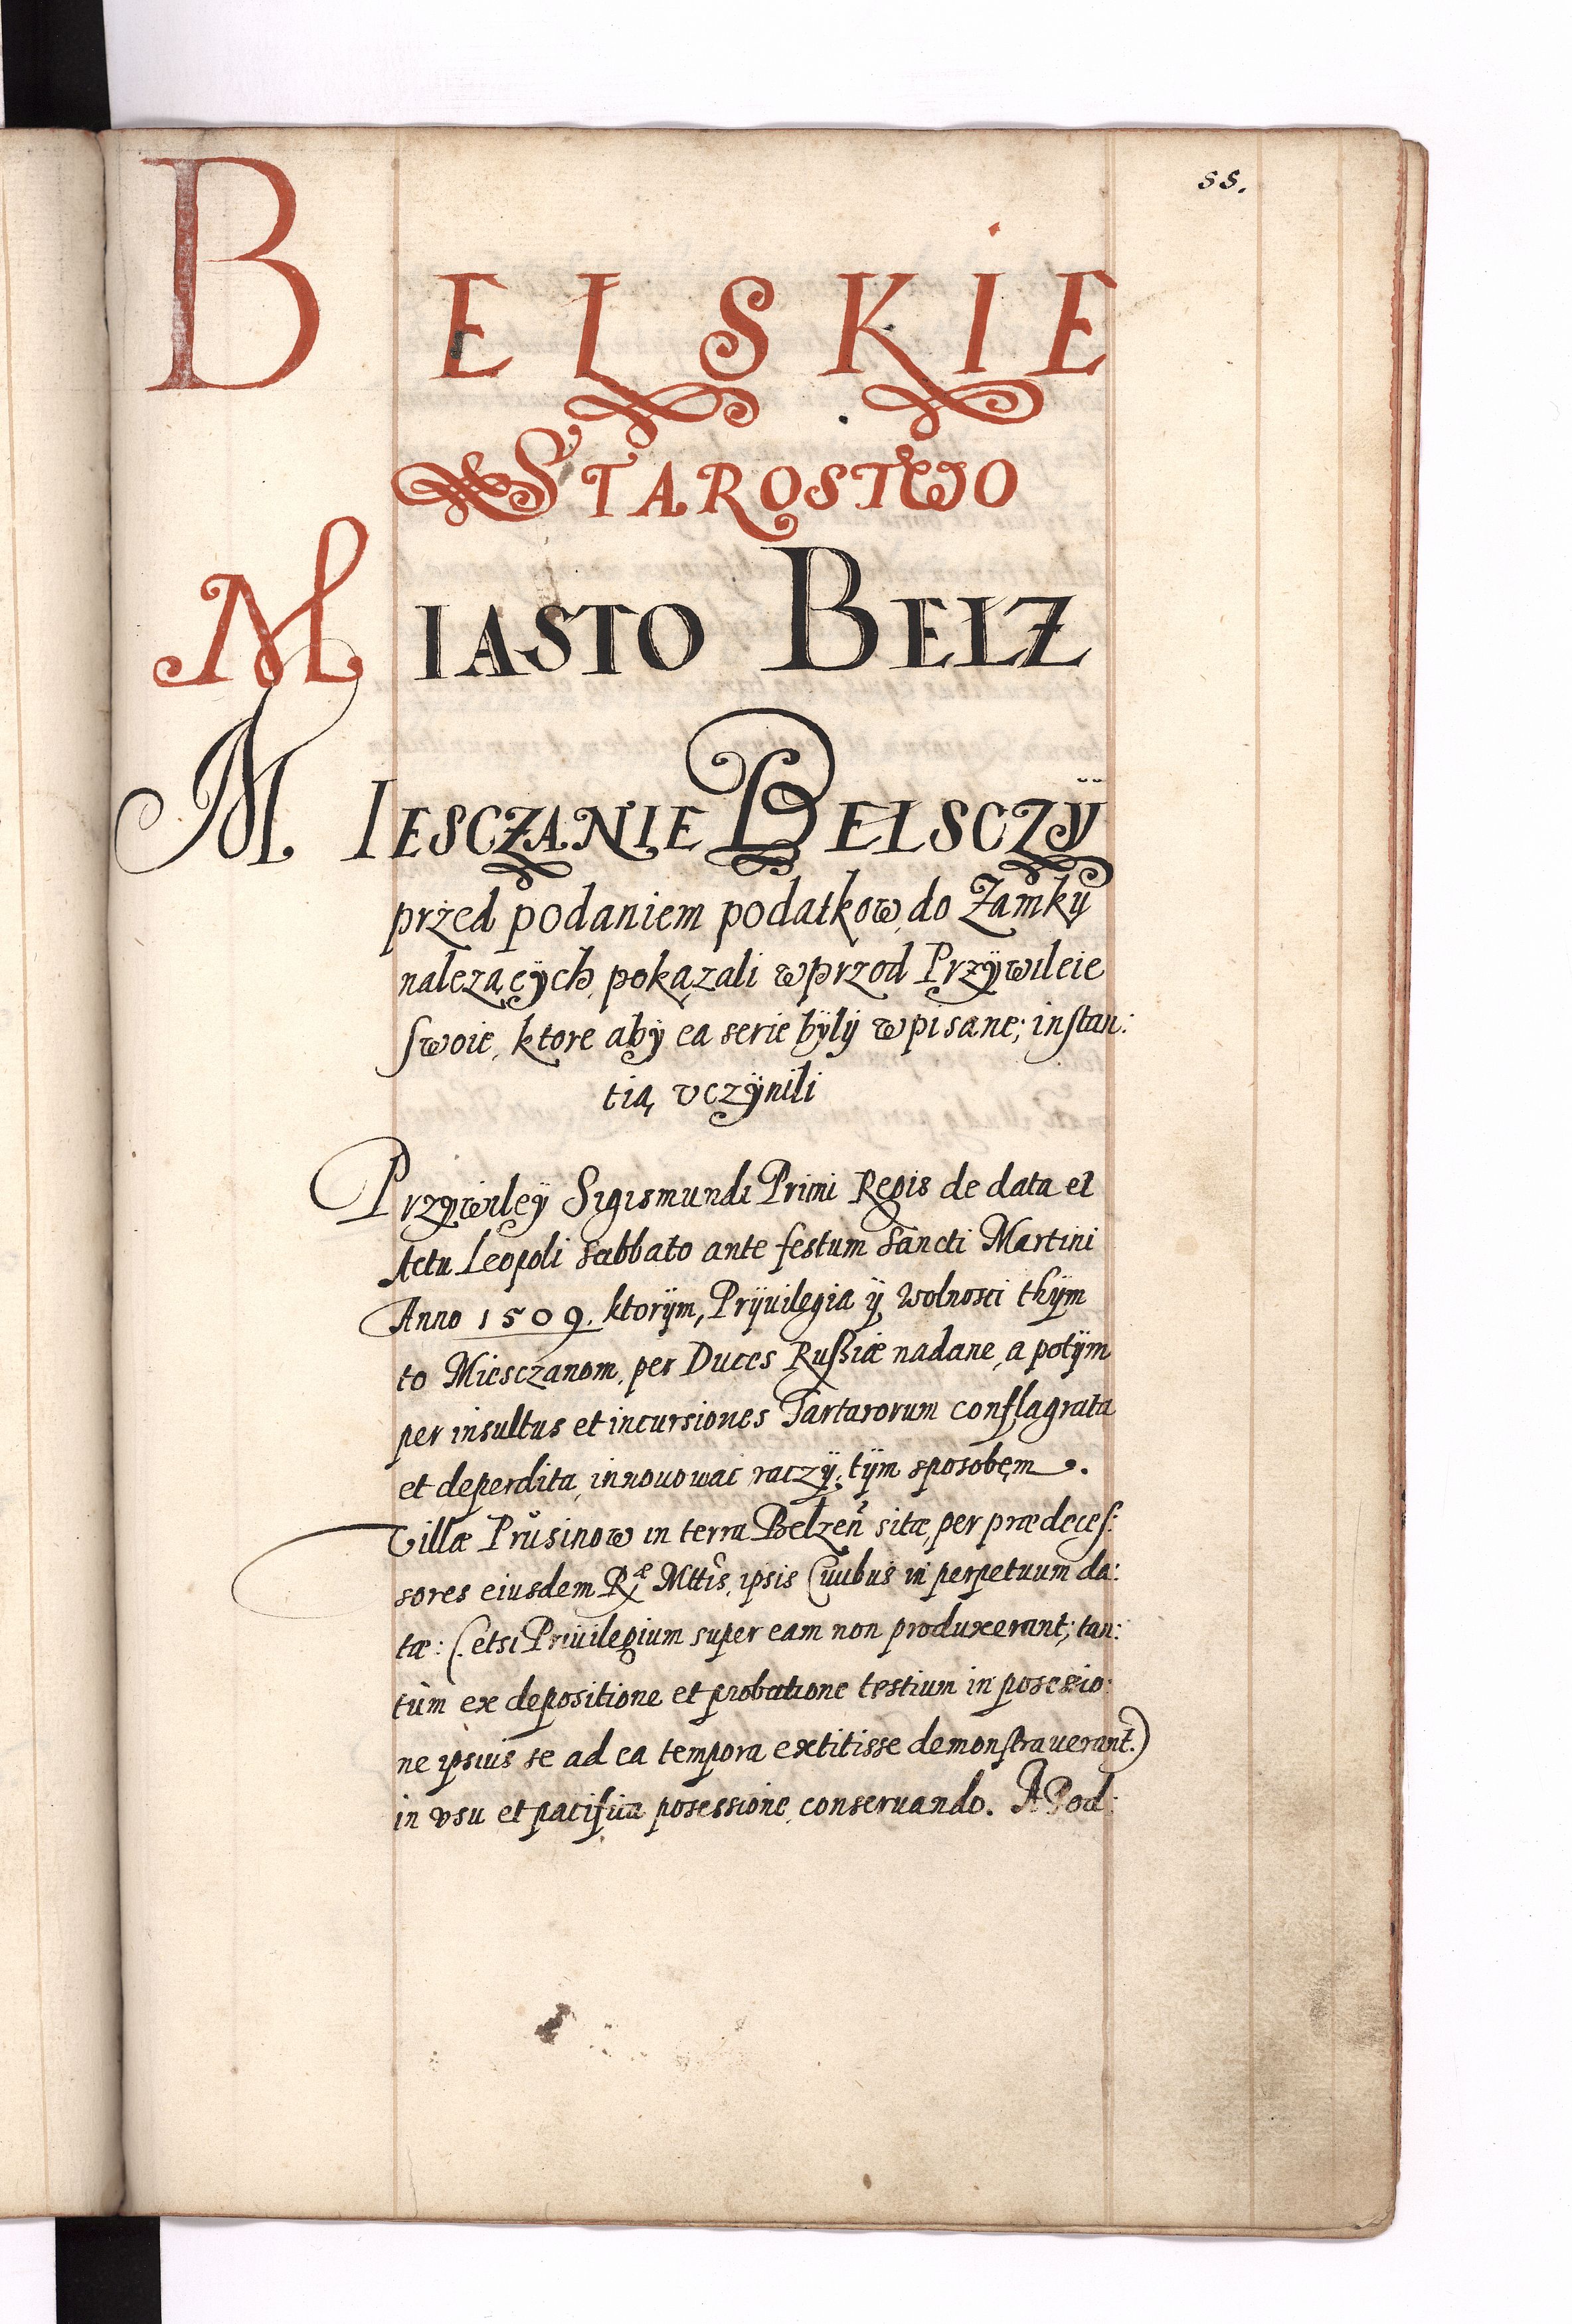 55.
BELSKIE
STAROSTWO
MIASTO BELZ
MIESCZANIE BELSCZÿ
przed podaniem podatkow, do Zamkü
nalezącÿch, pokązali wprzod Przÿwileie
swoie, ktore abÿ ea serie bÿlÿ wpisane; instan:
tią vczÿnili
Przÿwileÿ Sigismundi Primi Regis de data et
Actu Leopoli sabbato ante festum Sancti Martini
Anno 1509. ktorÿm, Prÿuilegia ÿ wolnosci thÿm
to Miesczanom, per Duces Rußiæ nadane, a potÿm
per insultus et incursiones Tartarorum conflagrata
et deperdita, innouowac raczÿ, tÿm sposobęm.
Villæ Prusinow in terra Belzeñ sitæ, per prædeces:
sores eiusdem Ræ Mttis, ipsis Ciuibus in perpetuum da:
tæ: (etsi Priuilegium super eam non produxerant; tan:
tùm ex depositione et probatione testium in posessio:
ne ipsius se ad ea tempora extitisse demonstrauerant.)
in vsu et pacifica posessione conseruando. A Pod: